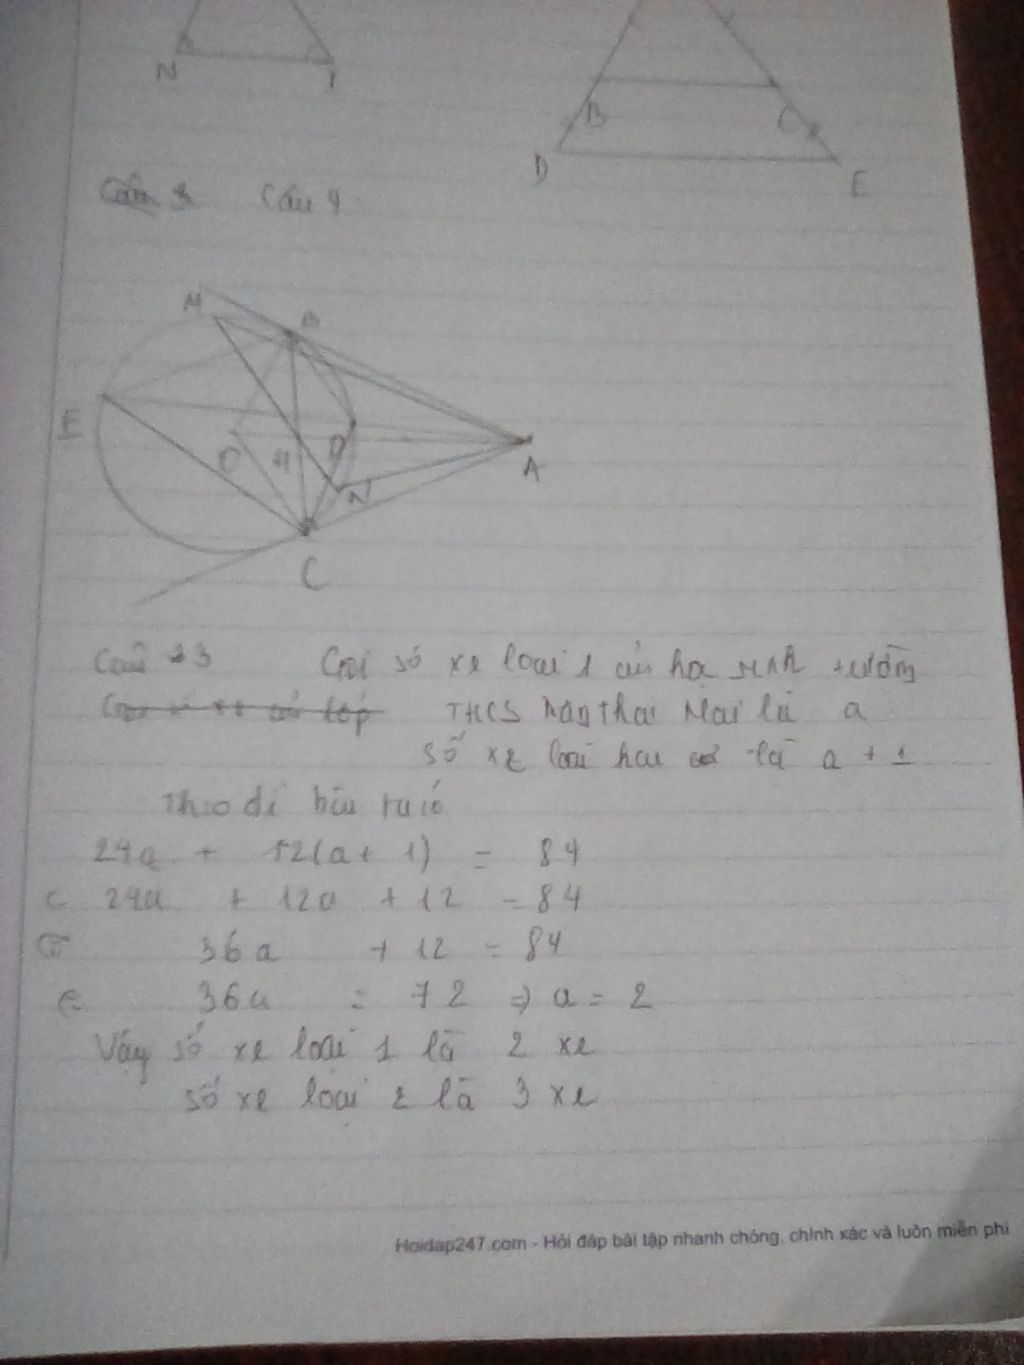 N I
B C
D E
Câu 4
M B
E O H D A
N
C
Câu 3 Gọi số xe loại 1 của học sinh trường
THCS Mai là a
số xe loại hai là a + 1
Theo đề bài ta có
24a + 12(a + 1) = 84
24a + 12a + 12 = 84
36a + 12 = 84
36a = 72 => a = 2
Vậy số xe loại 1 là 2 xe
số xe loại 2 là 3 xe
Hoidap247.com - Hỏi đáp bài tập nhanh chóng, chính xác và luôn miễn phí